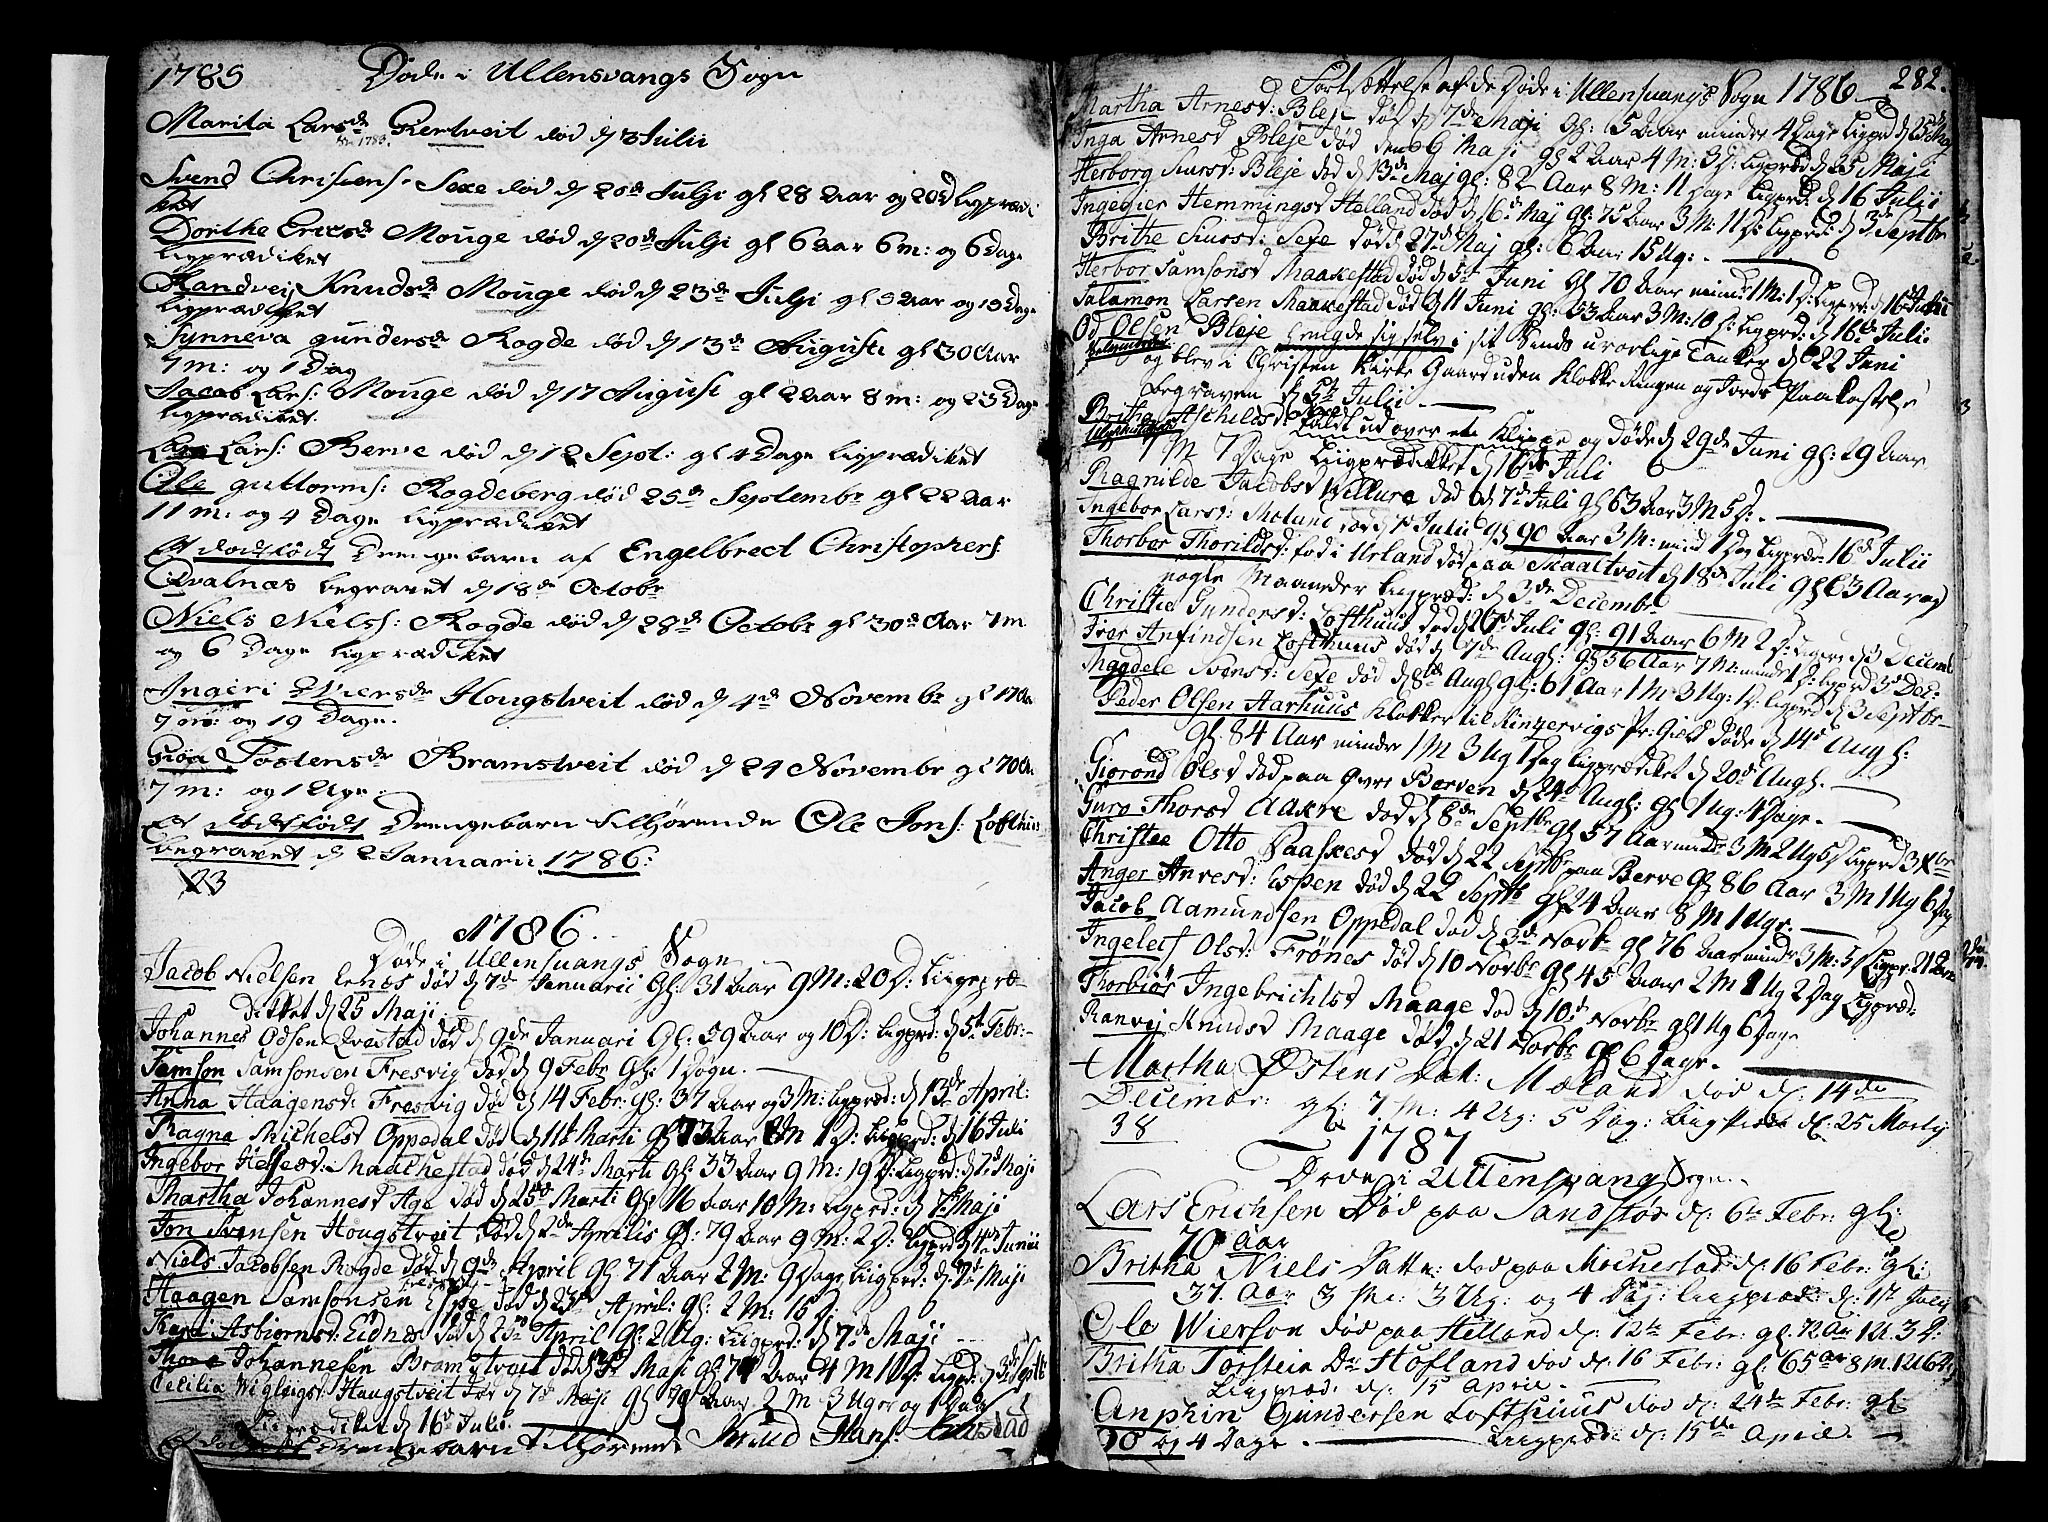 1785 Døde i Ullensvangs Sogn
Marita Larsdr Hertveit død d 3 Julii
Ao 1783.
Svend Christens: Sexe død d 20de Julii gl 28 Aar og 20 d ligprædi
ket
Dorithe Ericsdr Mouge død d 20de Julii gl 6 Aar 6 m: og 6 Dage
ligprædiket
Randvej Knudsdr Mouge død d 23de Julii gl 3 Aar og 19 Dage
ligprædiket
Synneva gundersdr Rogde død d 13de Augusti gl 30 Aar
7 m: og 1 Dag
Jacob Lars: Mouge død d 17 August gl 2 Aar 8 m: og 23 Dage
ligprædiket.
Lars Lars: Berve død d 12 Sept: gl 4 Dage ligprædiket
Ole guttorms: Rogdeberg død 25de Septembr gl 22 Aar
11 m: og 4 Dage ligprædiket
Et dødfødt Drengebarn af Engelbrect Christophers
Qvalnæs begravet d 18de Octobr
Niels Niels: Rogde død d 28de Octobr gl 30 Aar 7 m
og 6 Dage ligprædiket
Ingeri Iversdr Hougstveit død d 4de Novembr gl 17 Aar
7 m: og 19 Dage.
Giøa Tostensdr Bramstveit død d 24 Novembr gl 70 Aar
7 m: og 1 Uge.
Et dødfødt Drengebarn tilhørende Ole Jons: Lofthus
begravet d 2 Januarii 1786:
23
1786.
Døde i Ullensvangs Sogn
Jacob Nielsen Ernes død d 7de Januarii Gl: 31 Aar 9 M: 20 D: Ligpræ-
dikket d 25 Maji.
Johannes Odsen Qvestad død d 9de Januari Gl: 59 Aar og 10 D: Ligpræd: d 5te Febr:
Samson Samsonsen Fresvig død d 9 Febr Gl: 1 Døgn.
Anna Haagensd: Fresvig død d 14 Febr: Gl: 37 Aar og 3 M: Ligpræd: d 13de April:
Ragna Michelsd Oppedal død d 11te Marti Gl 73 Aar M 1 D: Ligpræd: d 16 Juli
Ingebor Maachestad død d 24de Marti Gl: 33 Aar 9 M: 19 D: Ligpræd: d 7de Maji
Martha Johannesd Age død d 25de Marti Gl: 16 Aar 10 M: Ligpræd: d 7de Maji
Jon Svensen Hougstveit død d 2de Aprilis Gl: 79 Aar 9 M: 2 D: Ligpræd d 4de Junii
Niels Jacobsen Rogde død d 9de April Gl 71 Aar 2 M: 9 Dage Ligpræd: d 7de Maji
Fresvig
Haagen Samsonsen Espe død d 23de April: Gl: 2 M: 15 D:
Kari Asbiørnsd: Eidnes død d April Gl: 2 Ug: Ligpræd: d 7de Maji
Johannesen Bramstveit død d 3de Maji Gl 71 Aar 4 M 1 D: Ligpr: d 3de Septb
Cecilia Wiglegsd: Haugstveit død d 7de Maji Gl 79 Aar 2 M 3 Uger og 1 Dag
Ligprædiket d 16de Juli.
Et dødfødt Drengebarn tilhørende Knud Hans:
Fortsættelse af de Døde i Ullensvangs Sogn 1786 282.
Martha Arnesd: Bleje død d 7de Maji Gl: 5 Aar mindre 4 Dage Ligprd d 25de Maj
Inga Arnesd Bleje død den 6 Maji Gl 2 Aar 4 M: 3 D: Ligpræd d 25 Maji
Herborg Siursd: Bleje død d 13de Maj Gl: 82 Aar 8 M: 11 Dage Ligpræd: d 16 Julii
Ingegier Hemmingsd Helland død d 16de Maj Gl: 75 Aar 3 M: 11 D: Ligpræd: d 3de Septbr
Brithe Siursd: Sexe død d 27de Maj Gl: 6 Aar 15 Ug:
Herbor Samsonsd Maakestad død d 5te Juni Gl 70 Aar mind: 1 M: 1 D: Ligpræd: d 16de Julii
Salamon Larsen Maakestad død d 11 Juni Gl: 53 Aar 3 M: 10 D: Ligpræd: d 16de Juli
Od Olsen Bleje hængde sig selv i sit Sinds urorlige Tanker d 22 Juni
Selvmorder og blev i Christen Kirke Gaard uden Klokke Ringen og Jords Paakastelse
begraven d 5te Julii.
Britha Aschildsd: Sexe faldt ud over en Klippe og døde d 29de Juni Gl: 29 Aar
7 M 7 Dage Ligprædikket d 16de Juli
Ragnilde Jacobsd Willure død d 7de Juli Gl 63 Aar 3 M 5 D.
Ingebor Larsd: død d 7de Julii Gl 90 Aar 3 M: mind 1 Dag Ligpræd: 16de Julii
Thorbor Thorildsd: fød i Urland død paa Skaaltveit d 18de Juli Gl 63 Aar og
nogle Maaneder Ligpræd: d 3de Decembr
Christie Gundersd: Lofthuus død d 26de Juli Gl: 91 Aar 6 M 2 D: Ligpræd 3 Decemb
Iver Anfindsen Lofthuus død d 7de Aug: Gl 56 Aar 7 M: mind 1 D: Ligprd 3de Dec:
Magdele Svensd: Sexe død d 8de Aug Gl: 61 Aar 1 M 3 Ug: 1 D: Ligprd d 3 Septbr
Peder Olsen Aarhuus Klokker til Kinzervigs Pr: Gield døde d 14de Aug:
Gl: 84 Aar mindr 1 M 3 Ug 1 Dag Ligprædiket d 20de Aug:
Gigrond Olsd død paa Øvre Berven d 24de Aug: Gl 1 Ug: 4 Dage.
Guro Thorsd Aakre død d 8de Septbr Gl 57 Aar mind 3 M 2 Ug 5 D Ligprd 3 Xbr
Christee Otto Paaskesd død d 22 Septbr paa Berve Gl 86 Aar 3 M 1 Ug 6 Dag
Anger Anvesd: Espen død d 22 Septb Gl 24 Aar 8 M 1 Ugr.
Jacob Aamundsen Oppedal død d 3de Novbr Gl 76 Aar mindr 3 M: 5 D Ligpr: 21 Jan
Ingeleif Olsd: Frønes død d 10 Novbr Gl 45 Aar 2 M 1 Ug 2 Dag Ligpræd:
Thorbiør Ingebrichtsd Maage død d 10de Novbr Gl 1 Ug 6 Dage
Ranvej Knudsd Maage død d 21 Novbr Gl 6 Dage.
Martha Østens Dat: Mæland død d: 14de
Decembr: gl: 7 M: 4 Ug: 5 Dag: Liigpræd d: 25 Marty
38
1787
Døde i Ullensvang Sogn.
Lars Erichsen Død paa Sandstøe d: 6te Febr: gl:
70 Aar
Britha Niels Datt: død paa Mochestad d: 16 Febr: gl:
37 Aar 3 M: 3 Ug: og 4 Dag: Liigpræd: d: 1ste July
Ole Wierson død paa Helland d: 12te Febr: gl: 72 Ar 1 U. 3 D:
Britha Torstein Dr Hofland død d: 16 Febr: gl 65 ar 8 m. 1 U 6 D
Liigpræd: d: 15 April.
Anphin Gundersen Lofthuus død d: 24de Febr: gl:
70 og 4 Dage. Liigpræd: d: 15de April.